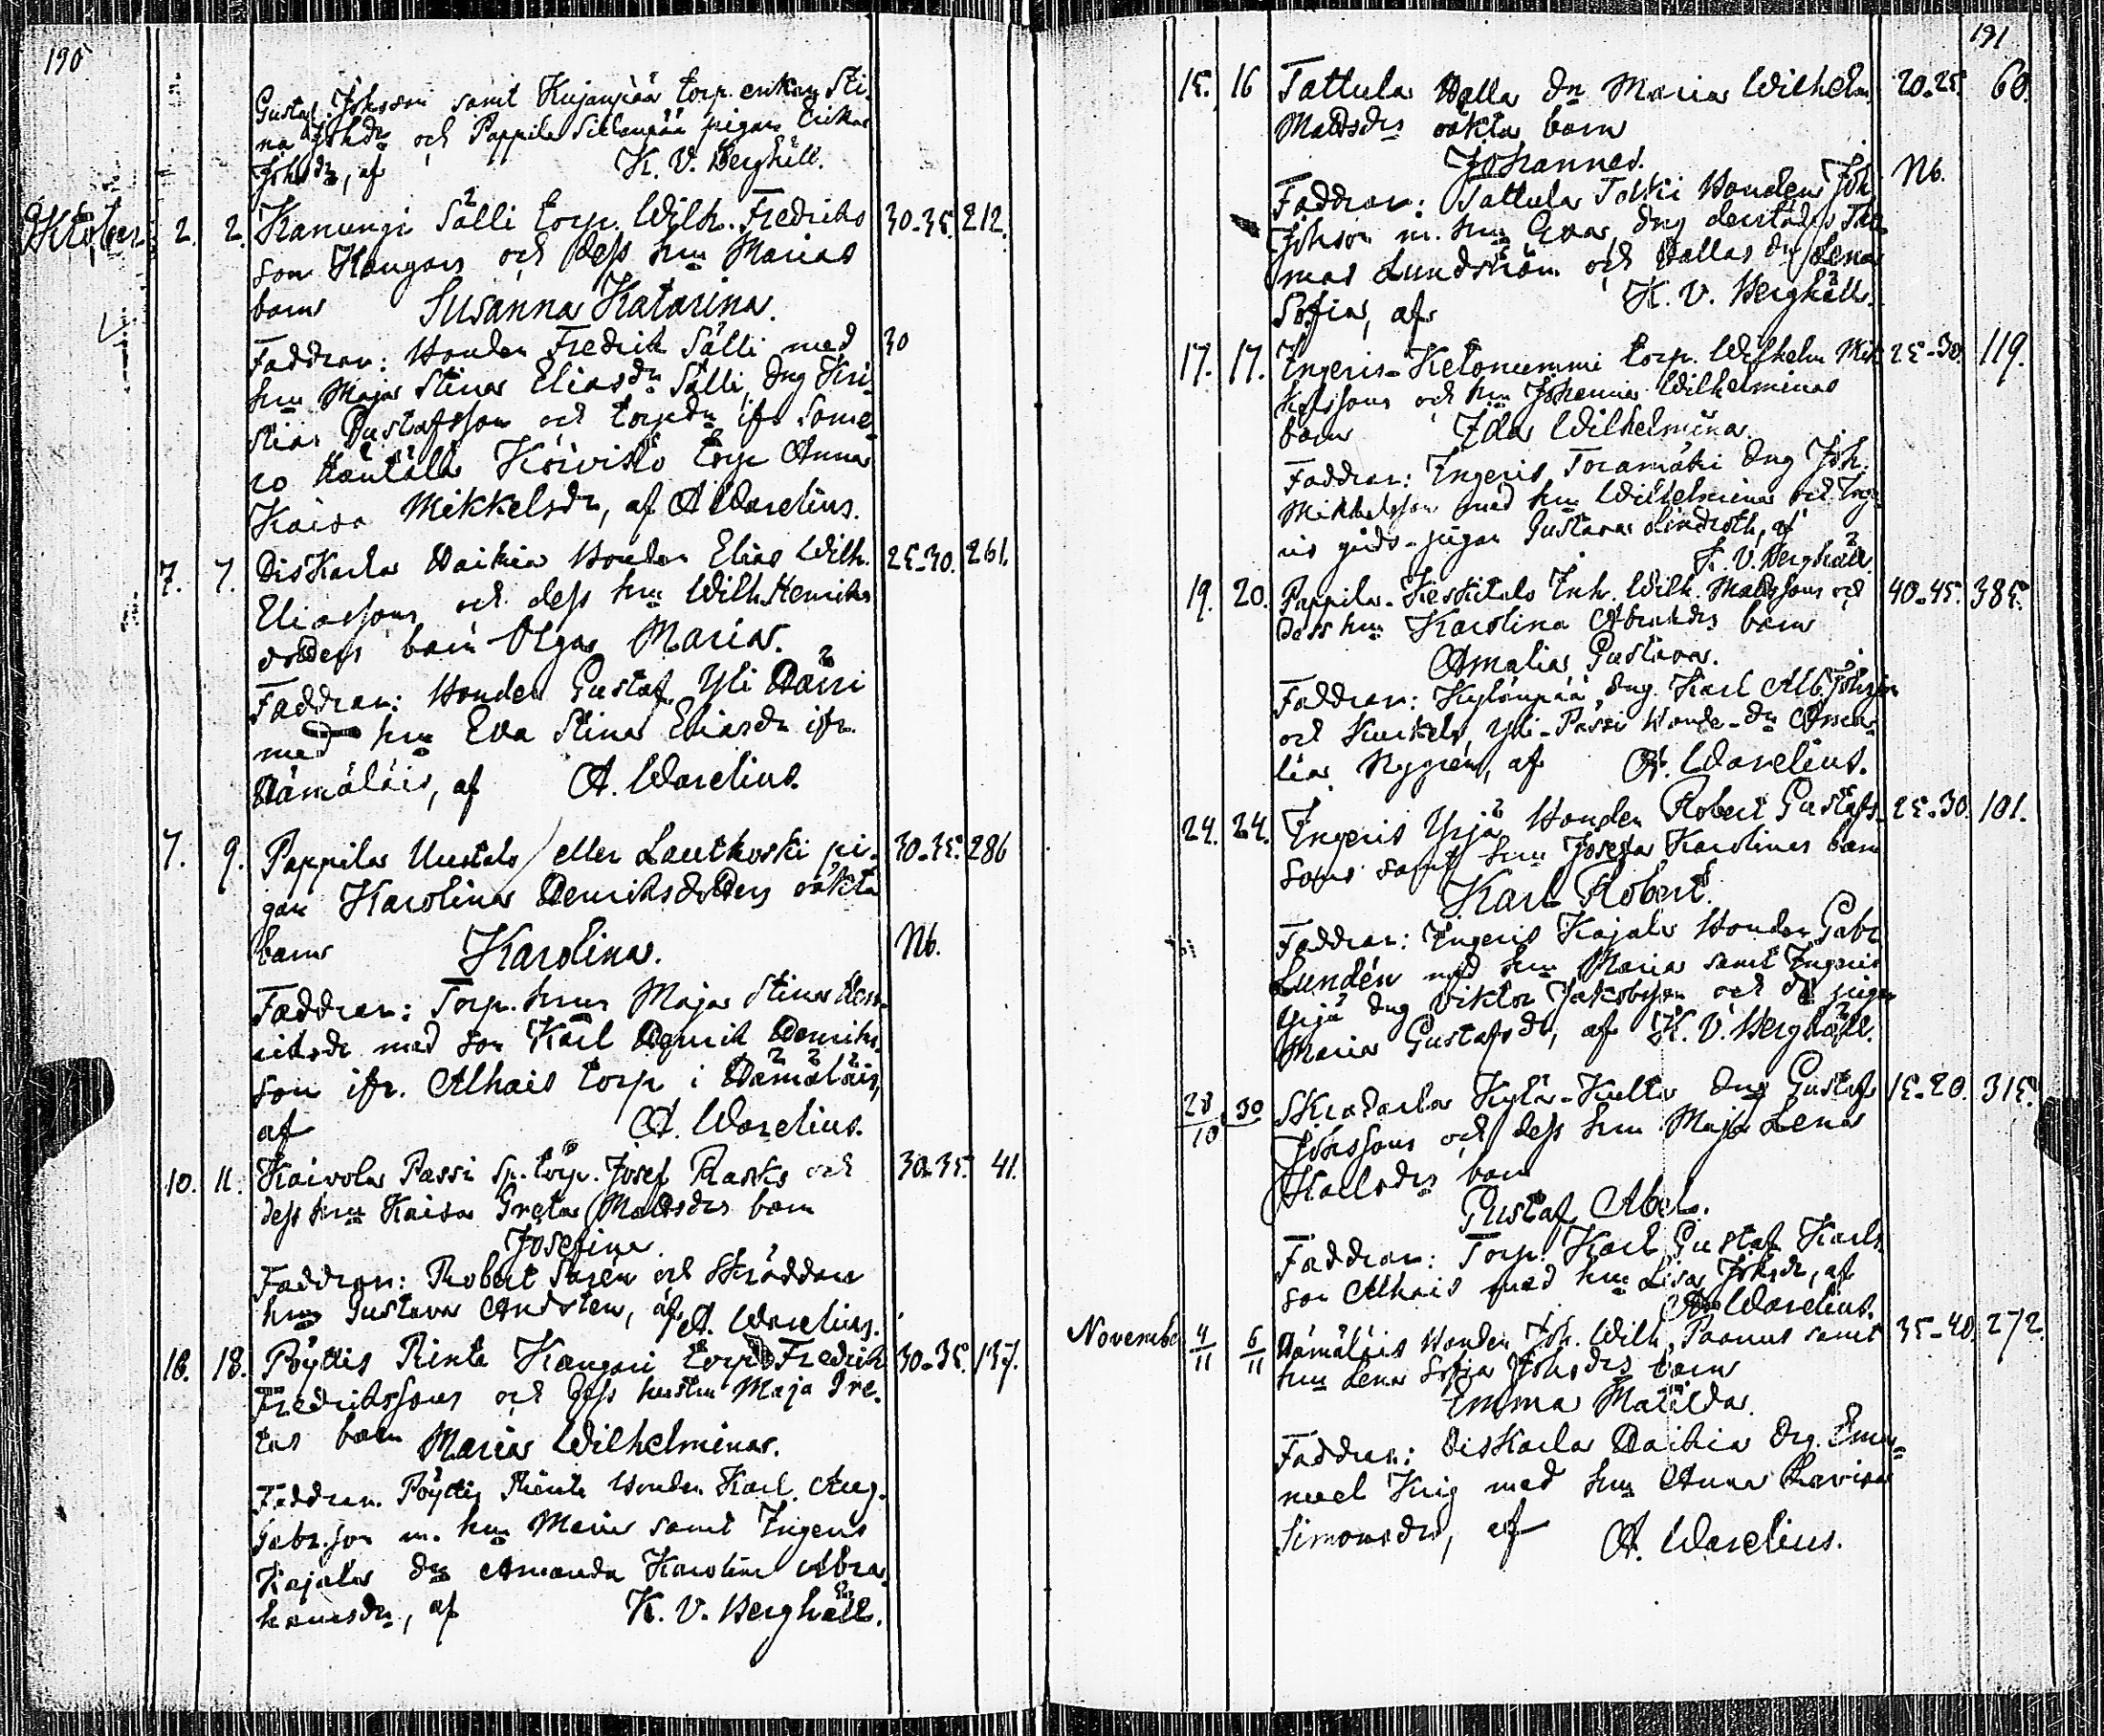 190
Gustaf Johsson samt Kujanpää torp. enkan Sti-
na Johdr och Pappila Sillanpää pigan Erika
Johsdr, af K. V. Berghäll.
Oktober 2. 2. Kanungi Sälli torp. Wilh. Fredriks 30-35. 212.
son Kangars och dess hu Marias
barn Susanna Katarina.
Faddrar: Bonden Fredrik Sälli med 30
hu Maja Stina Eliasdr Sälli, dng Kri-
stian Gustafsson och torpdr ifr Some-
ro Häntälä Koivisto torp Anna
Kaisa Mikkelsdr, af A Warelius.
7. 7. Diskarla Haikia Bonden Elias Wilh. 25-30. 261.
Eliassons och dess hu Wilh. Henriks
dotters barn Olga Maria.
Faddrar: Bonden Gustaf Yli
med hu Eva Stina Eliasdr ifr.
Hämäläis, af A. Warelius.
7. 9. Pappila Uustalo eller Lauthoski pi- 30-35. 286
gan Karolina Henriksdotters oäkta
barn Karolina. Nb.
Faddrar: Torp. hun Maja Stina Hen-
riksdr med son Karl Henrik Henriks-
son ifr. Alhais torp i Hämäläis,
af A. Warelius.
10. 11. Kaivola Passi sp. torp. Josef Rasks och 30-35. 41.
dess hu Kaisa Greta Mattsdrs barn
Josefina.
Faddrar: Robert Sarén och Skräddare
hu Gustava Andsten, af A. Warelius.
18. 18. Pöytis Rinta Kangari torp Fredrik 30-35. 137.
Fredrikssons och dess hustru Maja Gre-
tas barn Maria Wilhelmina.
Faddrar. Pöytis Rinta Bonden Karl Aug.
Gabr.son m. hu Maria samt Ingeris
Kajala dr Amanda Karolina Abra-
hamsdr, af K. V. Berghäll.
191
15. 16 Tattula Halla dr Maria Wilhelm. 20-25. 60.
Mattsdrs oäkta barn
Johannes. Nb.
Faddrar: Tattula Tolki Bonden Joh.
Johson m. hu Eva, dng derstädes Tho-
mas Lundström och Hallas dr Lena
Sofia, af K. V. Berghäll.
17. 17. Ingeris-Ketoniemmi torp. Wilhelm Mik- 25-30. 119.
kelssons och hu Johanna Wilhelminas
barn Ida Wilhelmina.
Faddrar: Ingeris Toramäki dng Joh.
Mikkelsson med hu Wilhelmina och Inge-
ris gårds-pigan Gustava Lindroth, af
K. V. Berghäll.
19. 20. Pappila-Keskitalo Inh. Wilh. Mattssons och 40-45. 385.
dess hu Karolina Abrahdrs barn
Amalia Gustava.
Faddrar: Kylänpää dng. Karl Alb. Johsson
och Kurkela Yli-Passi Bonde-dr Ama-
lia Nygrén, af A. Warelius.
24. 24. Ingeris Yrjä Bonden Robert Gustafs- 25-30. 101.
sons samt hu Josefa Karolinas barn
Karl Robert.
Faddrar: Ingeris Kajala Bonden Gabr.
Lundén med hu Maria samt Ingeris
Yrjä dng Viktor Jakobsson och pigan
Maria Gustafsdr, af K. V. Berghäll.
28/10 30 Skradarla Kylä-Kulta dng Gustaf 15-20. 315.
Johssons och dess hu Maja Lena
Karlsdrs barn
Gustaf Abel.
Faddrar: Torp. Karl Gustaf Karls-
son Alhais med hu Lisa Johsdr, af
A. Warelius.
November 4/11 6/11 Hämäläis Bonden Joh. Wilh. Paanus samt 35-40. 272.
hu Lena Sofia Johsdrs barn
Emma Matilda.
Faddrar: Diskarla Haikia Dng. Ema-
nuel Krig med hu Anna Lovisa
Simonsdr, af A. Warelius.